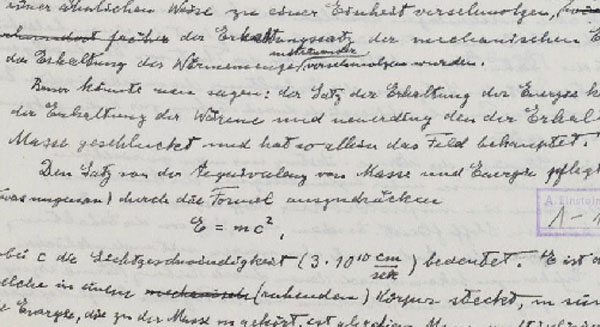 einer ähnlichen Weise zu einer Einheit verschmolzen,
früher der Erhaltungssatz der mechanischen E
miteinander
der Erhaltung der Wärmemenge verschmolzen wurden.
Besser könnte man sagen: der Satz der Erhaltung der Energie h
der Erhaltung der Wärme und neuerdings den der Erhal
Masse geschluckt und hat so allein das Feld behauptet.
Den Satz von der Aequivalenz von Masse und Energie pflegt
durch die Formel auszudrücken
E = mc²,
bei c die Lichtgeschwindigkeit (3 · 10¹⁰ cm/sek) bedeutet. E ist
welche in einem mechanisch (ruhenden) Körper steckt, m
Energie, die zu der Masse m gehört, ist
A. Einstein
1-1